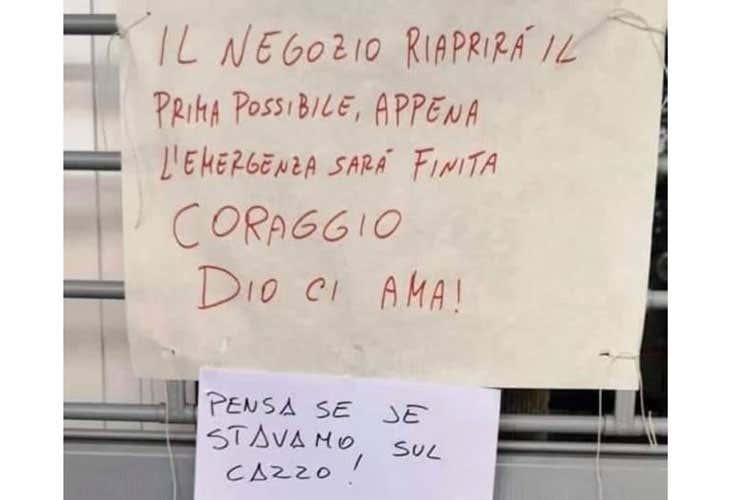 IL NEGOZIO RIAPRIRÁ IL
PRIMA POSSIBILE, APPENA
L'EMERGENZA SARÁ FINITA
CORAGGIO
DIO CI AMA!
PENSA SE JE
STAVAMO SUL
CAZZO!